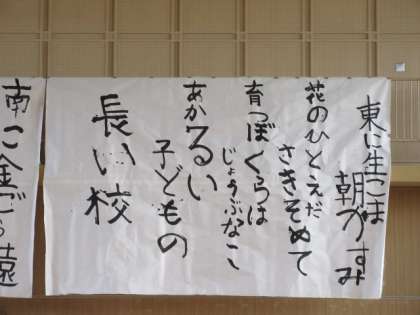 東に生つは
朝がすみ
花のひとえだ
さきそめて
育つぼくらは
じょうぶなこ
あかるい
子どもの
長い校
南に金ごう遠